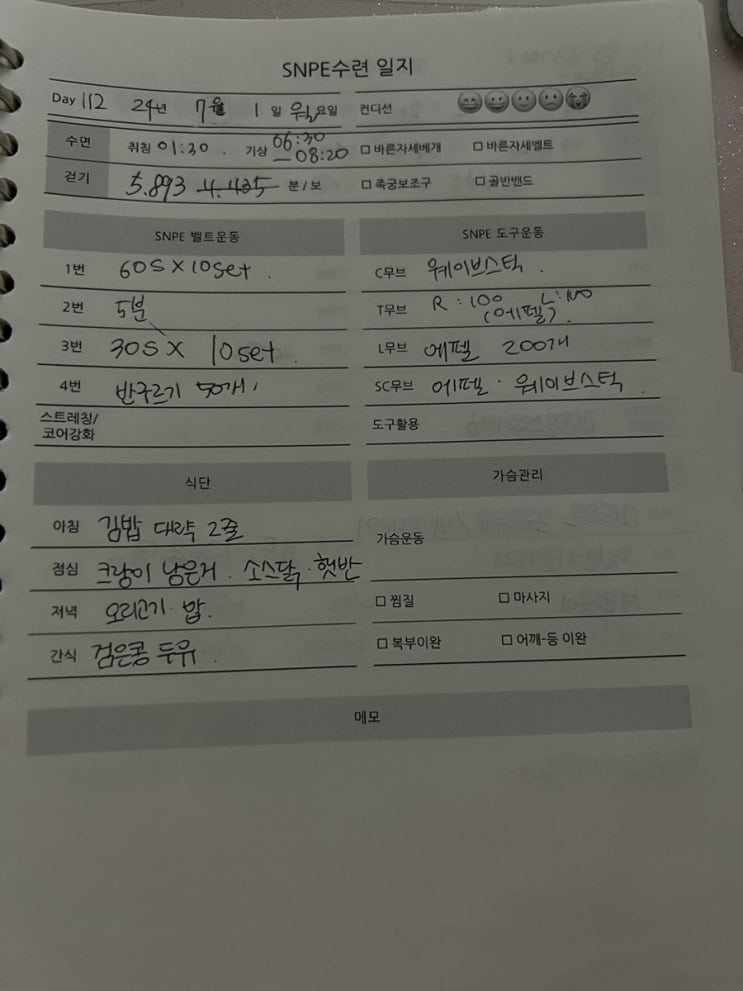 SNPE수련 일지
Day 112 24년 7월 1일 월요일 컨디션
수면 취침 01:30 . 기상 06:30 — 08:20 □ 바른자세베개 □ 바른자세벨트
걷기 5.893 4.435 분/보 □ 족궁보조구 □ 골반밴드
SNPE 벨트운동 SNPE 도구운동
1번 60S X 10set . C무브 웨이브스틱 .
2번 5분 T무브 R : 100 L : 100 (에펠).
3번 30S X 10set . L무브 에펠 200개
4번 반구르기 50개. SC무브 에펠 · 웨이브스틱 .
스트레칭/ 도구활용
코어강화
식단 가슴관리
아침 김밥 대략 2줄 가슴운동
점심 크랑이 남은거 . 소스닭 · 햇반
저녁 오리고기 · 밥. □ 찜질 □ 마사지
간식 검은콩 두유 . □ 복부이완 □ 어깨-등 이완
메모